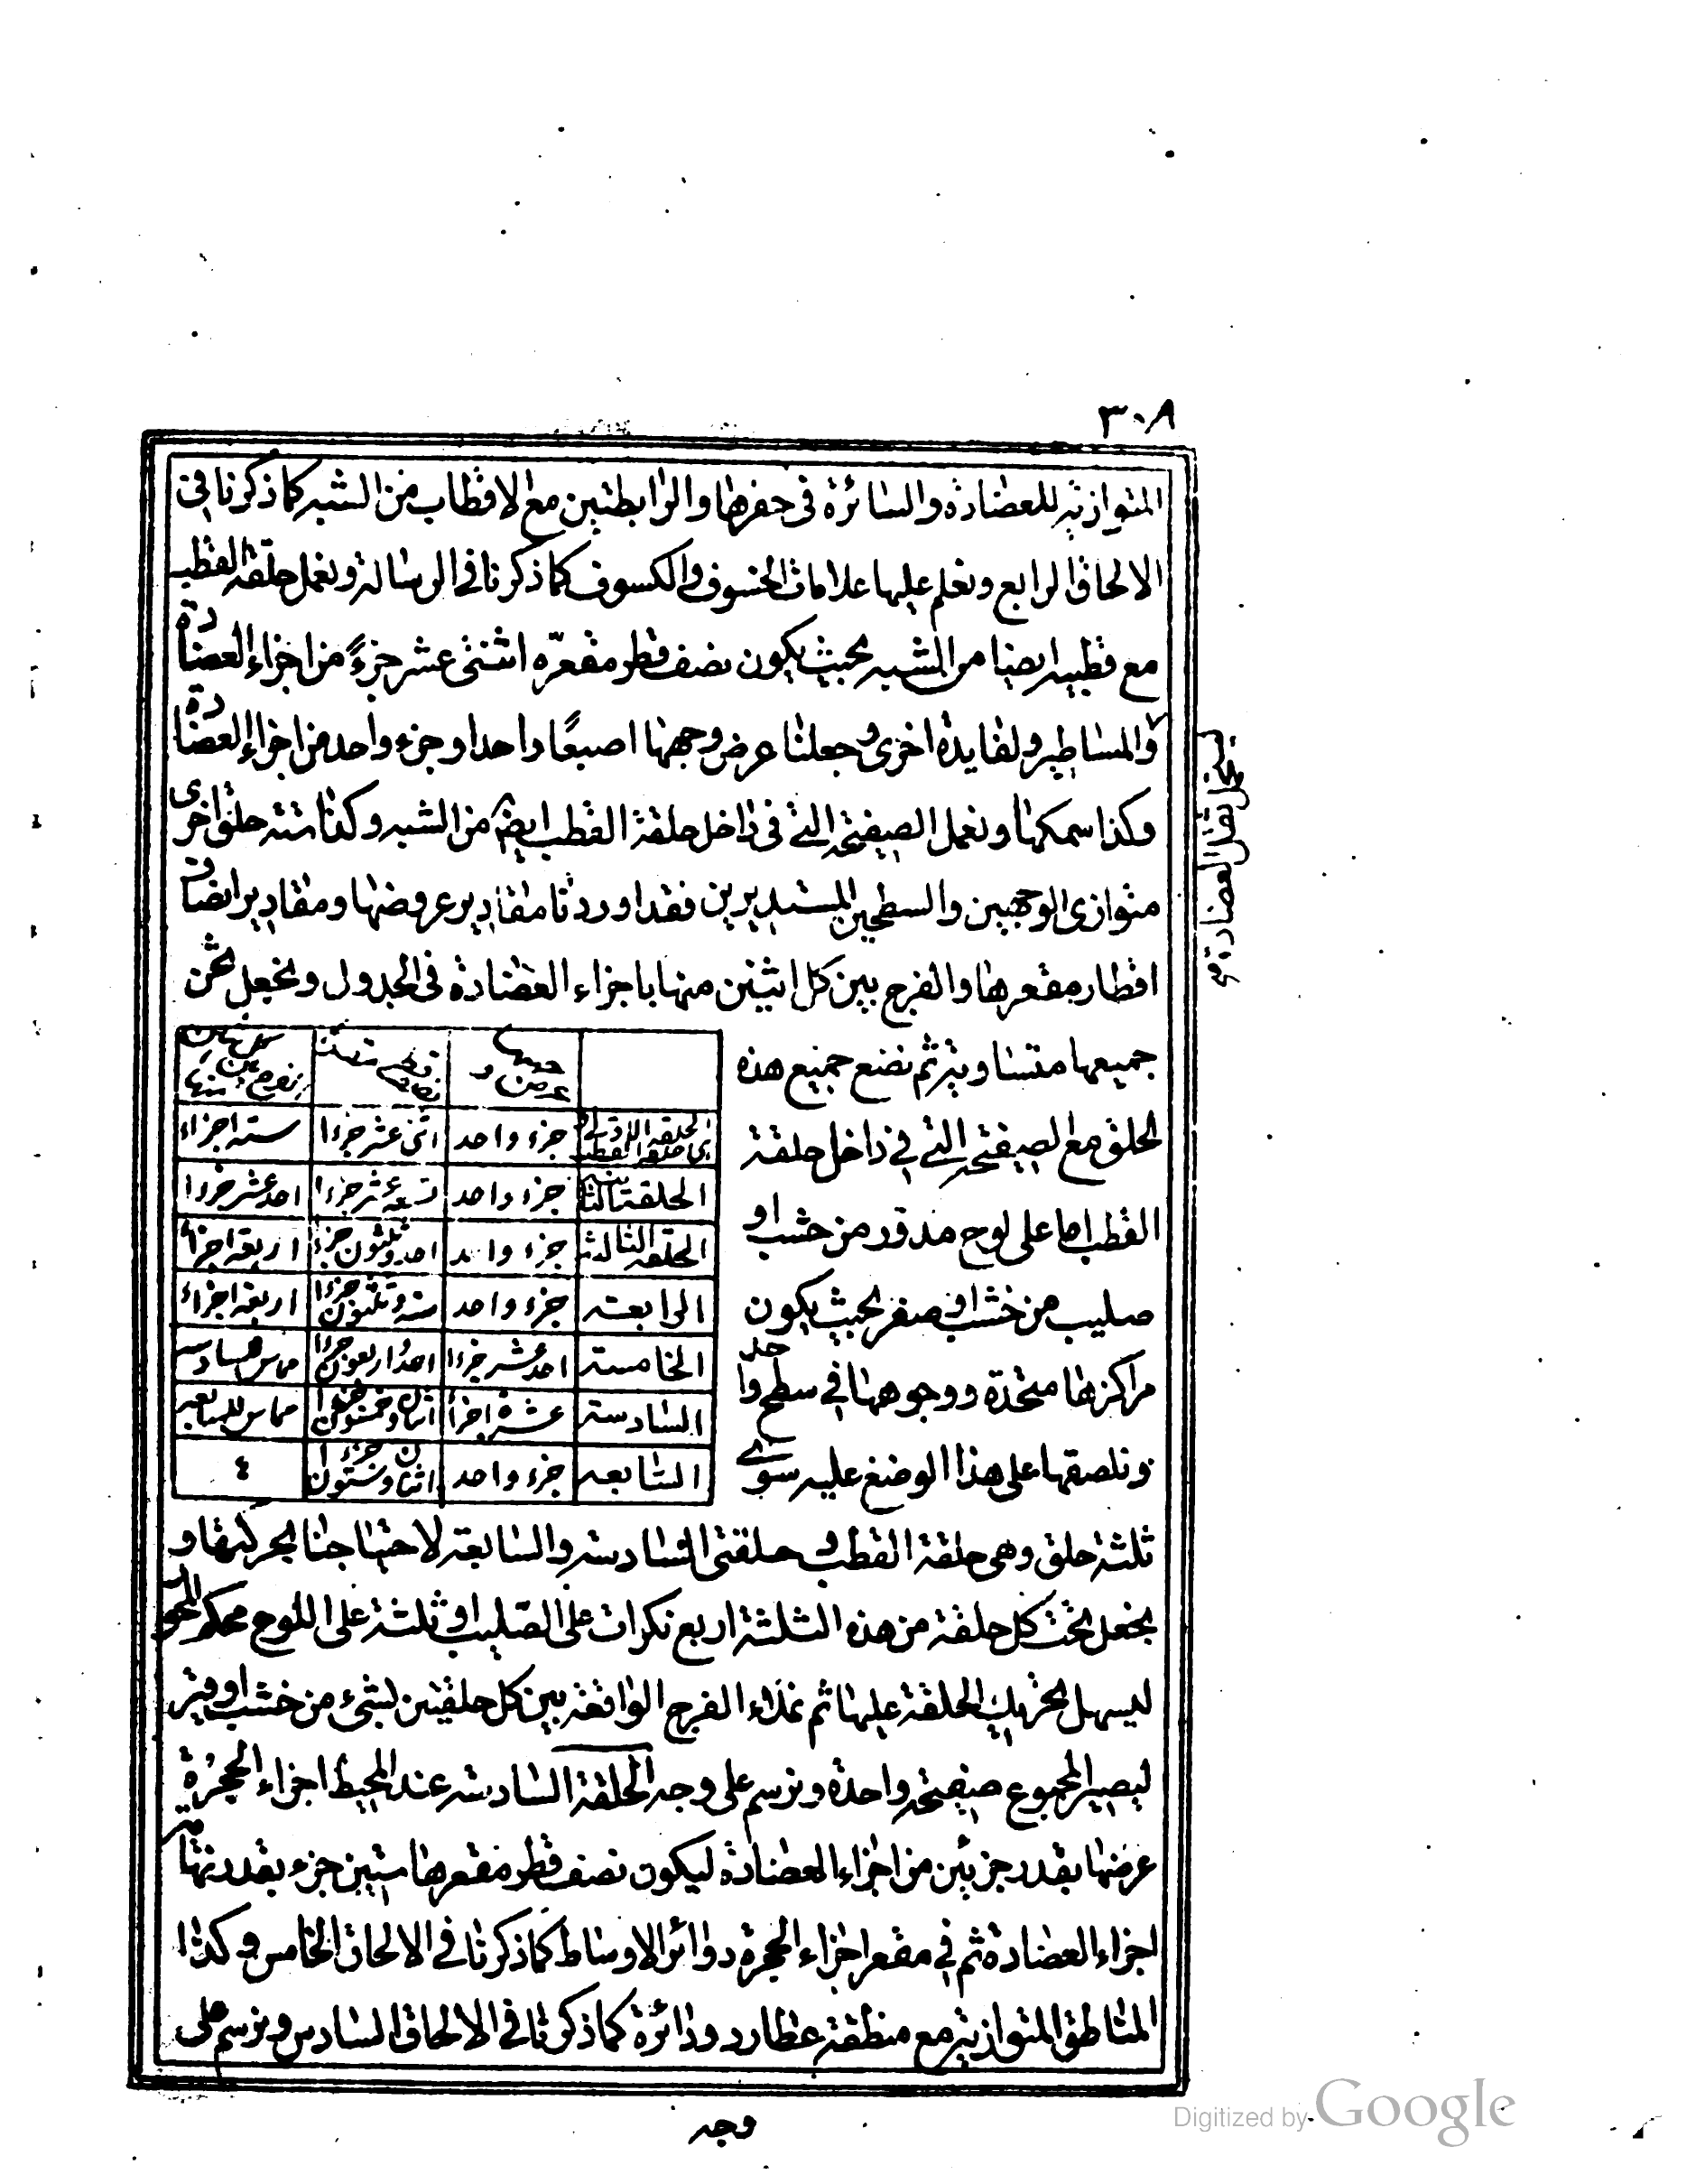 ٣٠٨
المتوازية للعضادة والسائرة في حفرها والرابطتين مع الاقطاب من الشبه كما ذكرنا في
الالحاق الرابع ونعلم عليها علامات الخسوف والكسوف كما ذكرنا في الرسالة ونعمل حلقة القطب
مع قطبيه ايضا من الشبه بحيث يكون نصف قطر مقعره اثنى عشر جزءً من اجزاء العضادة
والمساطير ولفايدة اخرى وجعلنا عرض وجهها اصبعًا واحدا وجزء واحد من اجزاء العضادة
وكذا سمكها ونعمل الصفيحة التي في داخل حلقة القطب ايضا من الشبه وكذا ستة حلق اخرى
متوازى الوجهين والسطحين المستديرين فقد اوردنا مقادير عروضها ومقادير انصاف
اقطار مقعرها والفرج بين كل اثنين منها باجزاء العضادة في الجدول ونجعل ثخن
جميعها متساوية ثم نضع جميع هذه
الحلق مع الصفيحة التي في داخل حلقة
القطب اما على لوح مدور من خشب او
صليب من خشب او صفر بحيث يكون
مراكزها متحدة ووجوهها في سطح واحد
ونلصقها على هذا الوضع عليه سوى
الحلقة الاولى اى حلقة القطب جزء واحد اثنى عشر جزءا ستة اجزاء
الحلقة الثانية جزء واحد تسعة عشر جزءا احد عشر جزءا
الحلقة الثالثة جزء واحد احد وثلثون جزء اربعة اجزاء
الرابعة جزء واحد ستة وثلثون جزءا اربعة اجزاء
الخامسة احد عشر جزءا احد واربعون جزءا مماس للسادسة
السادسة عشرة اجزاء اثنان وخمسون جزءا مماس للسابعة
السابعة جزء واحد اثنان وستون جزءا ٤
ثلثة حلق وهى حلقة القطب وحلقتى السادسة والسابعة لاحتياجنا بحركتها و
نجعل تحت كل حلقة من هذه الثلثة اربع بكرات على الصليب او ثلثة على اللوح محكم المحور
ليسهل تحريك الحلقة عليها ثم نملاء الفرج الواقعة بين كل حلقتين بشئ من خشب او قير
ليصير المجموع صفيحة واحدة ونرسم على وجه الحلقة السادسة عند المحيط اجزاء الحجرة
عرضها بقدر جزئين من اجزاء العضادة ليكون نصف قطر مقعرها ستين جزء بقدر نهاية
اجزاء العضادة ثم في مقعر اجزاء الحجرة دوائر الاوساط كما ذكرنا في الالحاق الخامس وكذا
المناطق المتوازية مع منطقة عطارد ودائرة كما ذكرنا في الالحاق السادس ونرسم على
وجه
Digitized by Google